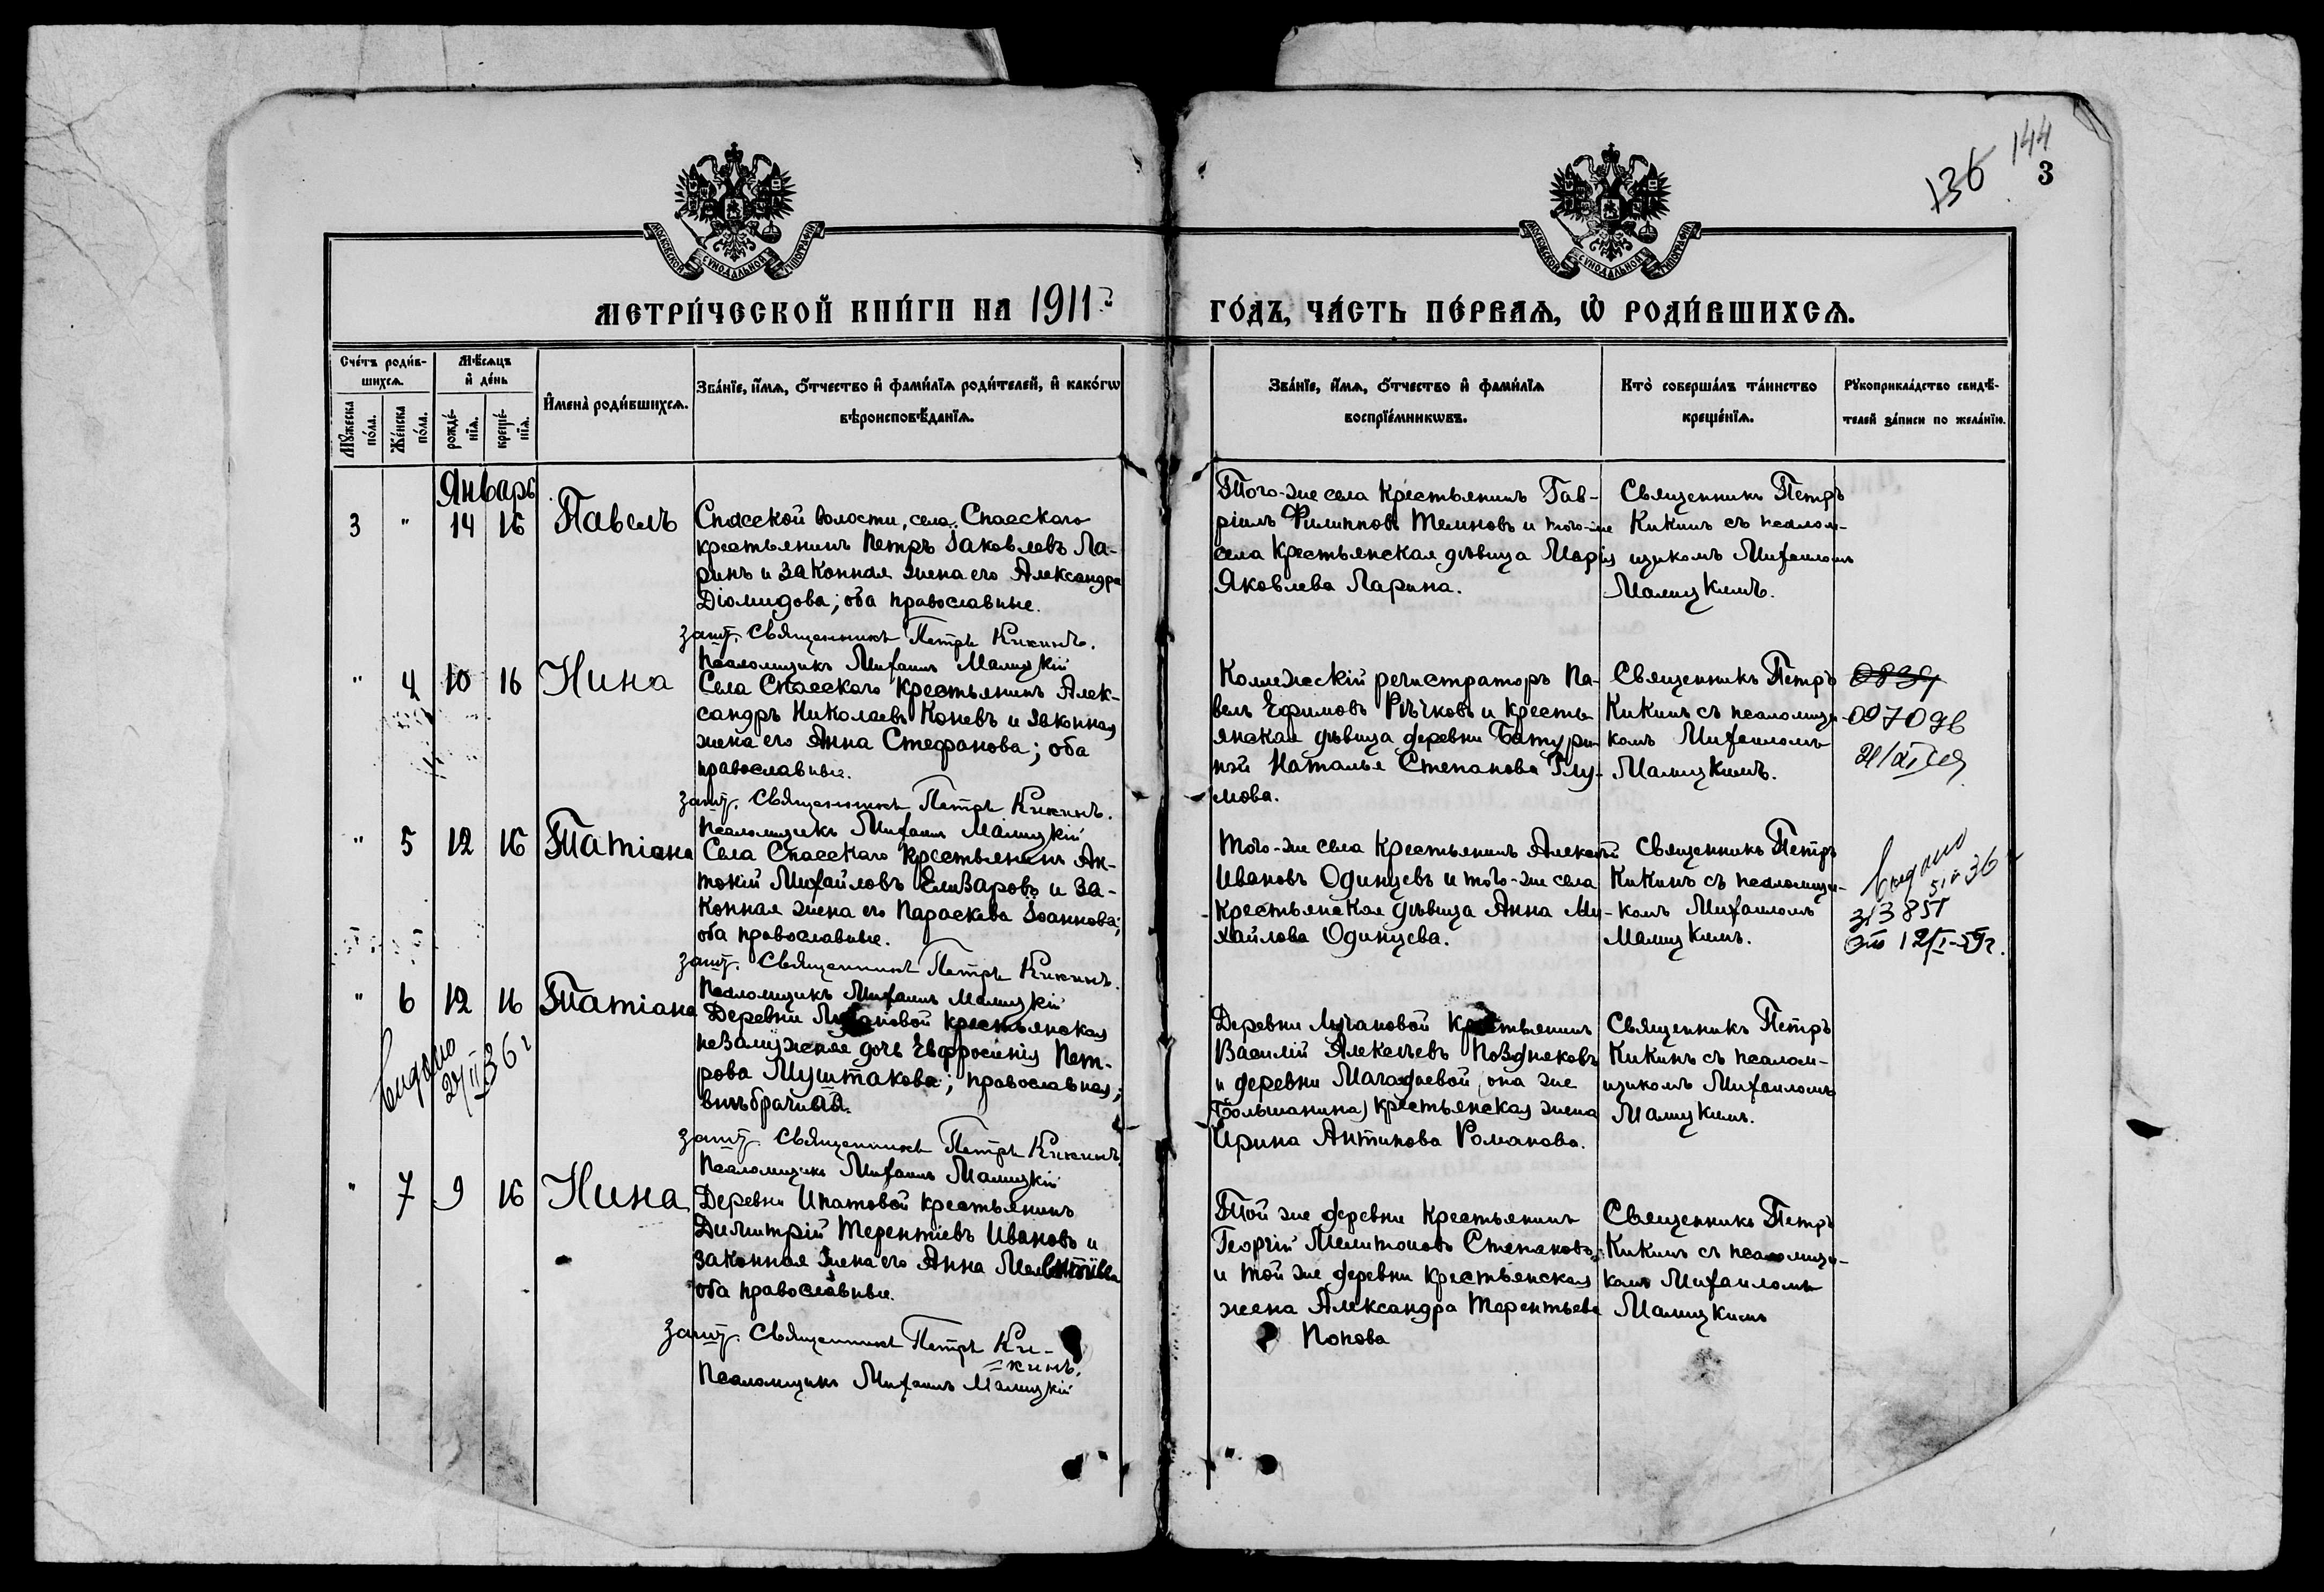 144
136
3
МОСКОВСКОЙ СѴНОДАЛЬНОЙ ТИПОГРАФІИ
МОСКОВСКОЙ СѴНОДАЛЬНОЙ ТИПОГРАФІИ
МЕТРИ́ЧЕСКОЙ КНИ́ГИ НА 1911 г.
ГО́ДЪ, ЧА́СТЬ ПЕ́РВАѦ, Ѽ РОДИ́ВШИХСѦ.
Сче́тъ роди́в-
шихсѧ.
Мѣ́сѧцъ
и҆ де́нь
Мꙋ́жеска
по́ла.
Же́нска
по́ла.
рожде́-
нїѧ.
креще́-
нїѧ.
И҆мена̀ роди́вшихсѧ.
Зва́нїе, и҆́мѧ, ѻ҆́тчество и҆ фами́лїѧ роди́телей, и҆ како́гѡ
вѣроисповѣ́данїѧ.
Зва́нїе, и҆́мѧ, ѻ҆́тчество и҆ фами́лїѧ
воспрїе́мникѡвъ.
Кто̀ соверша́лъ та́инство
креще́нїѧ.
Рꙋкоприкла́дство свидѣ́-
телей за́писи по жела́нїю.
Январь
3 " 14 16 Павелъ
Спасской волости, села Спасскаго
крестьянинъ Петръ Іаковлевъ Ла-
ринъ и законная жена его Александра
Діомидова; оба православные.
Свѧщенникъ Петръ Кикинъ.
Псаломщикъ Михаилъ Малицкій
Того-же села крестьянинъ Гав-
ріилъ Филипповъ Темновъ и того-же
села крестьянская дѣвица Марія
Яковлева Ларина.
Священникъ Петръ
Кикинъ съ псалом-
щикомъ Михаиломъ
Малицкимъ.
" 4 10 16 Нина
Села Спасскаго крестьянинъ Алек-
сандръ Николаевъ Коневъ и законная
жена его Анна Стефанова; оба
православные.
Свѧщенникъ Петръ Кикинъ.
Псаломщикъ Михаилъ Малицкій
Коллежскій регистраторъ Па-
велъ Ефимовъ Рѣчковъ и кресть-
янская дѣвица деревни Батури-
ной Наталья Степанова Глу-
мова.
Священникъ Петръ
Кикинъ съ псаломщи-
комъ Михаиломъ
Малицкимъ.
" 5 12 16 Татіана
Села Спасскаго крестьянинъ Ан-
тоній Михайловъ Елизаровъ и за-
конная жена его Параскева Іоаннова;
оба православные.
Свѧщенникъ Петръ Кикинъ.
Псаломщикъ Михаилъ Малицкій
Того-же села крестьянинъ Алексѣй
Ивановъ Одинцевъ и того-же села
крестьянская дѣвица Анна Ми-
хайлова Одинцева.
Священникъ Петръ
Кикинъ съ псаломщи-
комъ Михаиломъ
Малицкимъ.
Выдано
" 6 12 16 Татіана
Выдано
Деревни Лучановой крестьянская
незамужняя дочь Евфросинія Пет-
рова Муштакова; православная;
внѣбрачная.
Свѧщенникъ Петръ Кикинъ.
Псаломщикъ Михаилъ Малицкій
Деревни Лучановой крестьянинъ
Василій Алексѣевъ Поздняковъ
и деревни Магадаевой, она же
(Большанина) крестьянская жена
Ирина Антипова Романова.
Священникъ Петръ
Кикинъ съ псалом-
щикомъ Михаиломъ
Малицкимъ.
" 7 9 16 Нина
Деревни Ипатовой крестьянинъ
Димитрій Терентіевъ Ивановъ и
законная жена его Анна
оба православные.
Свѧщенникъ Петръ Ки-
=кинъ.
Псаломщикъ Михаилъ Малицкій
Той же деревни крестьянинъ
Георгій Мелитоновъ Степановъ
и той же деревни крестьянская
жена Александра Терентьева
Попова
Священникъ Петръ
Кикинъ съ псаломщи-
комъ Михаиломъ
Малицкимъ